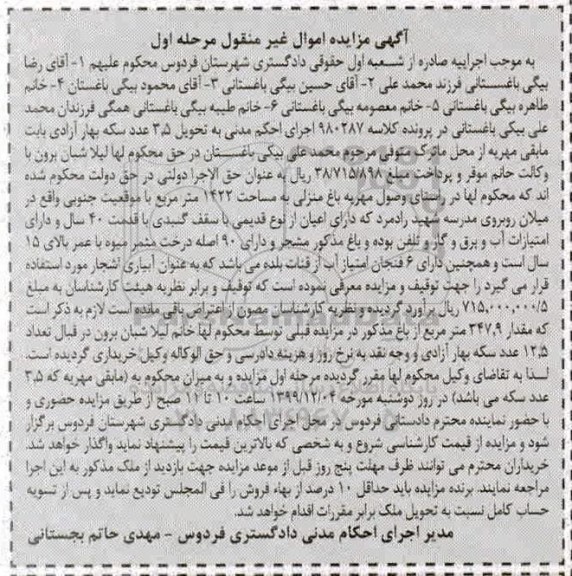 آگهی مزایده اموال غیر منقول مرحله اول
به موجب اجراییه صادره از شعبه اول حقوقی دادگستری شهرستان فردوس محکوم علیهم ۱- آقای رضا
بیگی باغستانی فرزند محمد علی ۲- آقای حسین بیگی باغستانی ۳- آقای محمود بیگی باغستان ۴- خانم
طاهره بیگی باغستانی ۵- خانم معصومه بیگی باغستانی ۶- خانم طیبه بیگی باغستانی همگی فرزندان محمد
علی بیکی باغستانی در پرونده کلاسه ۹۸۰۲۸۷ اجرای احکم مدنی به تحویل ۳,۵ عدد سکه بهار آزادی بابت
مابقی مهریه از محل ماترک متوفی مرحوم محمد علی بیکی باغستان در حق محکوم لها لیلا شبان برون با
وکالت خانم موقر و پرداخت مبلغ ۳۸۷۱۵/۸۹۸ ریال به عنوان حق الاجرا دولتی در حق دولت محکوم شده
اند که محکوم لها در راستای وصول مهریه باغ منزلی به مساحت ۱۴۲۲ متر مربع با موقعیت جنوبی واقع در
میلان روبروی مدرسه شهید رادمرد که دارای اعیان از نوع قدیمی با سقف گنبدی با قدمت ۴۰ سال و دارای
امتیازات آب و برق و گاز و تلفن بوده و باغ مذکور مشجر و دارای ۹۰ اصله درخت مثمر میوه با عمر بالای ۱۵
سال است و همچنین دارای ۶ فنجان امتیاز آب از قنات بلده می باشد که به عنوان آبیاری اشجار مورد استفاده
قرار می گیرد را جهت توقیف و مزایده معرفی نموده است که توقیف و برابر نظریه هیئت کارشناسان به مبلغ
۷۱۵,۰۰۰,۰۰۰/۵ ریال برآورد گردیده و نظریه کارشناسان مصون از اعتراض باقی مانده است لازم به ذکر است
که مقدار ۳۴۷,۹ متر مربع از باغ مذکور در مزایده قبلی توسط محکوم لها خانم لیلا شبان برون در قبال تعداد
۱۲,۵ عدد سکه بهار آزادی و وجه نقد به نرخ روز و هزینه دادرسی و حق الوکاله وکیل خریداری گردیده است.
لذا به تقاضای وکیل محکوم لها مقرر گردیده مرحله اول مزایده و به میزان محکوم به (مابقی مهریه که ۳,۵
عدد سکه می باشد) در روز دوشنبه مورخه ۱۳۹۹/۱۲/۰۴ ساعت ۱۰ تا ۱۱ صبح از طریق مزایده حضوری و
با حضور نماینده محترم دادستانی فردوس در محل اجرای احکم مدنی دادگستری شهرستان فردوس برگزار
شود و مزایده از قیمت کارشناسی شروع و به شخصی که بالاترین قیمت را پیشنهاد نماید واگذار خواهد شد.
خریداران محترم می توانند ظرف مهلت پنج روز قبل از موعد مزایده جهت بازدید از ملک مذکور به این اجرا
مراجعه نمایند. برنده مزایده باید حداقل ۱۰ درصد از بهاء فروش را فی المجلس تودیع نماید و پس از تسویه
حساب کامل نسبت به تحویل ملک برابر مقررات اقدام خواهد شد.
مدیر اجرای احکام مدنی دادگستری فردوس - مهدی حاتم بجستانی